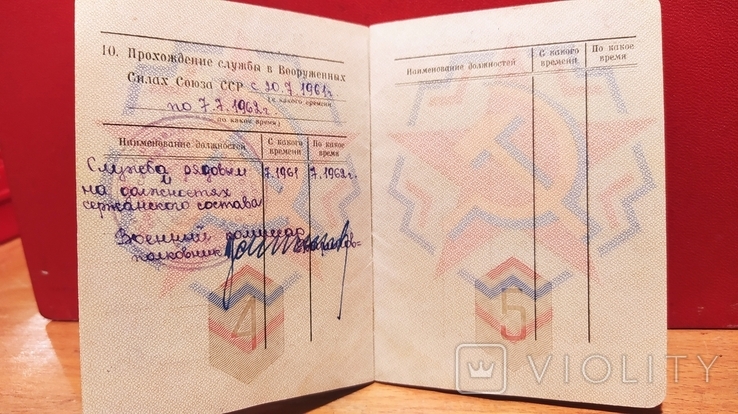 10. Прохождение службы в Вооруженных
Силах Союза ССР с 20.7.1961г.
(с какого времени
по 7.7.1962г
по какое время)
Наименование должностей
С какого времени
По какое время
Служба рядовым
и
7.1961
7.1962г.
на должностях
сержанского состава
Военный комиссар
полковник
4
Наименование должностей
С какого времени
По какое время
5
VIOLITY